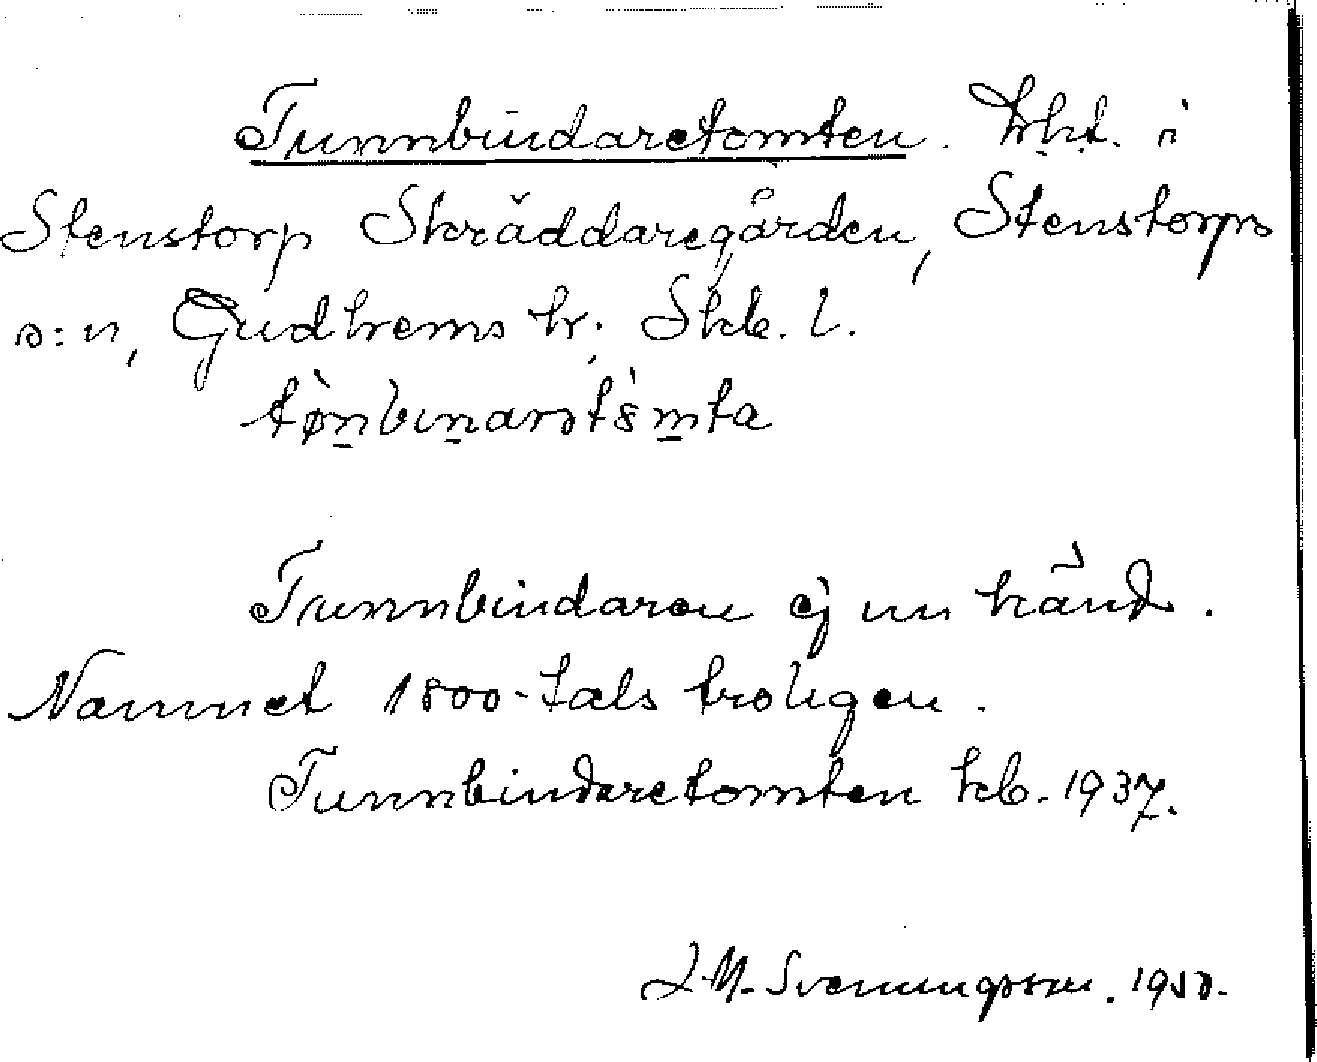 Tunnbindaretomten. lht. i
Stenstorp Skräddaregården, Stenstorps
s:n, Gudhems hr. Skb. l.
Tunnbindaren ej nu känd.
Namnet 1800-tals troligen.
Tunnbindaretomten kb. 1937.
Svenungsson. 1950.